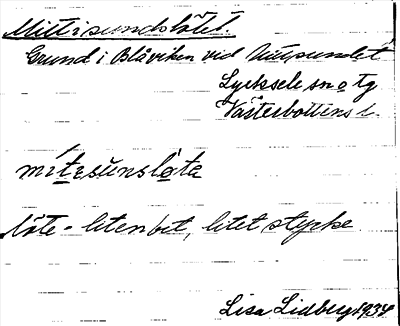 Mitt i sundslôtet.
Grund i Blåviken vid
Lycksele sn o tg
Västerbottens l.
mıtɛsŭnslòta
lôte - liten bit, litet stycke
Lisa Lidberg 1934